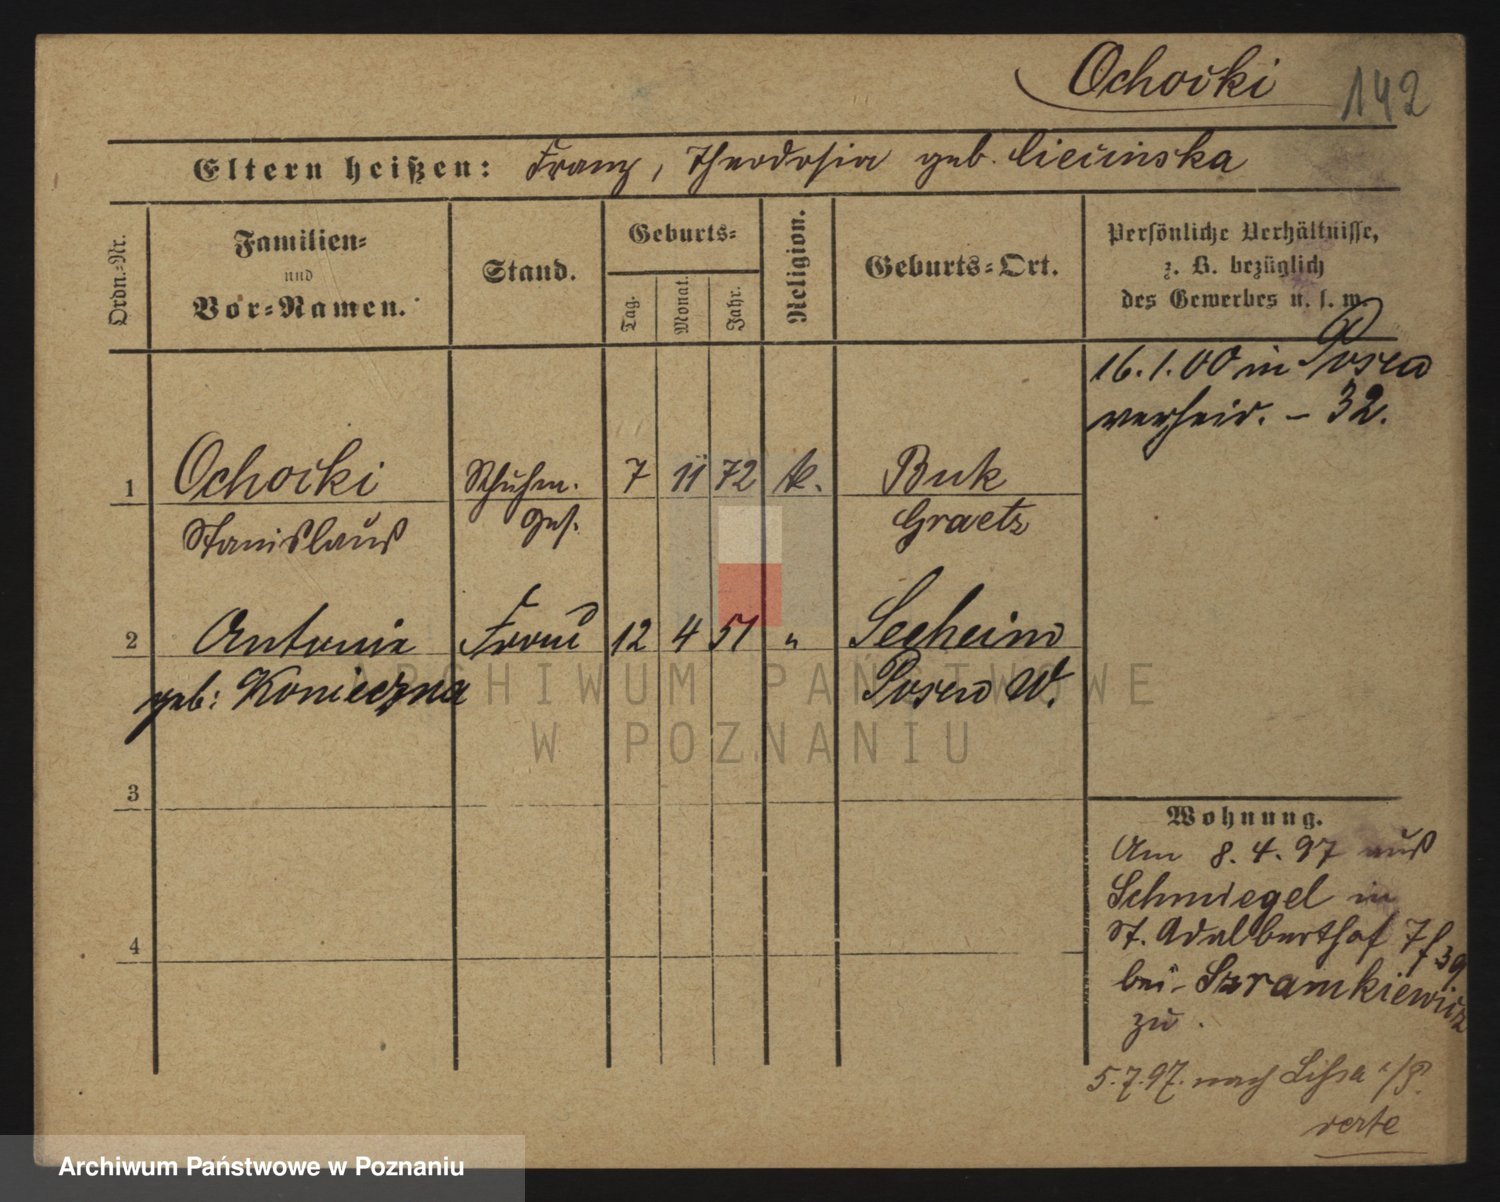 Ochocki 142
Eltern heißen: Franz, Theodosia geb. Ciecinska
Ordn.=Nr.
Familien=
und
Vor=Namen.
Stand.
Geburts=
Tag.
Monat.
Jahr.
Religion.
Geburts=Ort.
Persönliche Verhältnisse,
z. B. bezüglich
des Gewerbes u. s. w.
16.1.00 in Posen
verheir. – 32.
1 Ochocki Schuhm. 7 11 72 k. Buk
Stanislaus Ges. Graetz
2 Antonie Frau 12 4 51 " Seeheim
geb: Konieczna Posen W.
3
4
Wohnung.
Am 8.4.97 aus
Schmiegel in
St. Adalberthof 7
bei Szramkiewicz
zu.
5.7.97. nach Lissa i/P.
verte
ARCHIWUM PAŃSTWOWE
W POZNANIU
Archiwum Państwowe w Poznaniu